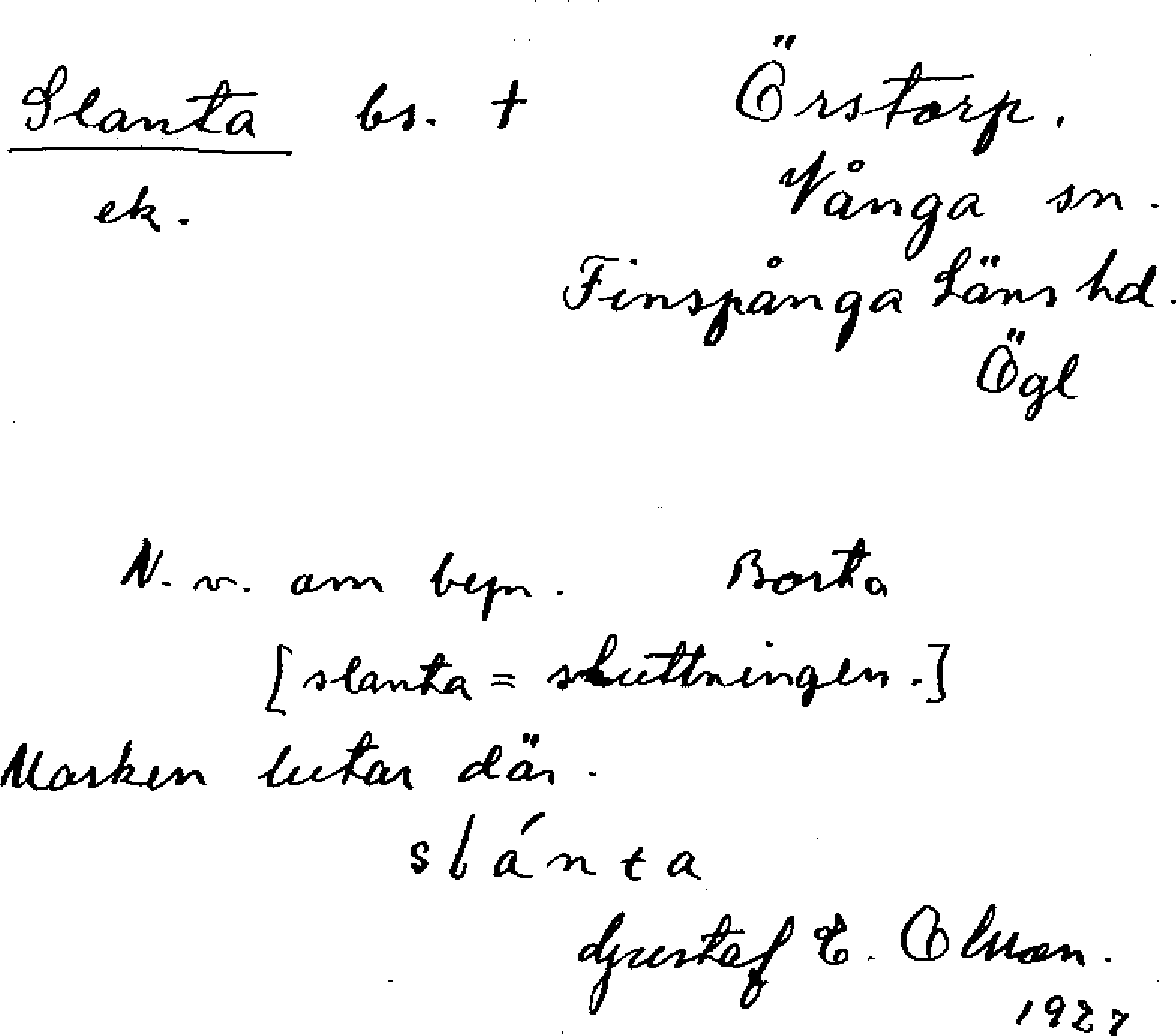 Slanta bs. † Örstorp.
ek. Vånga sn.
Finspånga Läns hd.
Ögl
N. v. om byn. Borta
[slanta = sluttningen.]
Marken lutar där.
slánta
Gustaf E. Olsson.
1927